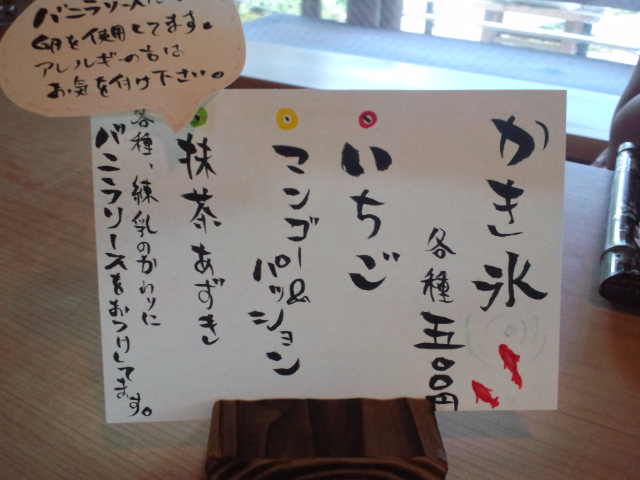 かき氷
各種 五〇〇円
いちご
マンゴー&パッション
抹茶あずき
各種、練乳のかわりに
バニラソースをおつけしてます。
バニラソースに
卵を使用してます。
アレルギーの方は
お気を付け下さい。